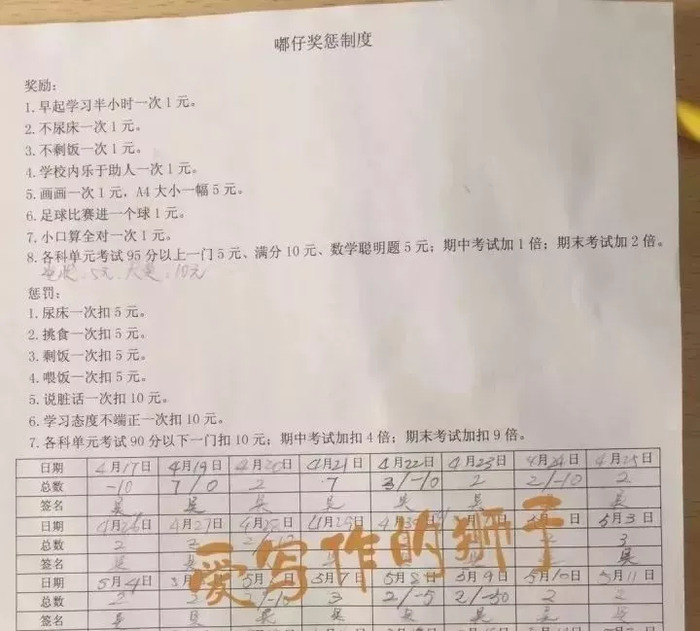 嘟仔奖惩制度
奖励：
1.早起学习半小时一次1元。
2.不尿床一次1元。
3.不剩饭一次1元。
4.学校内乐于助人一次1元。
5.画画一次1元，A4大小一幅5元。
6.足球比赛进一个球1元。
7.小口算全对一次1元。
8.各科单元考试95分以上一门5元、满分10元、数学聪明题5元；期中考试加1倍；期末考试加2倍。
5元、10元
惩罚：
1.尿床一次扣5元。
2.挑食一次扣5元。
3.剩饭一次扣5元。
4.喂饭一次扣5元。
5.说脏话一次扣10元。
6.学习态度不端正一次扣10元。
7.各科单元考试90分以下一门扣10元；期中考试加扣4倍；期末考试加扣9倍。
日期 4月17日 4月19日 4月20日 4月21日 4月22日 4月23日 4月24日 4月25日
总数 -10 7/0 2 7 3/-10 2 2/-10 2
签名 吴 吴 吴 吴 吴 吴 吴 吴
日期 4月26日 4月27日 4月28日 4月29日 5月3日
总数 2 2 2 3
签名 吴 吴
爱写作的狮子
日期 5月4日 5月7日 5月8日 5月9日 5月10日 5月11日
总数 2 2 2/-10 3 2/-5 2/-50 2 2
签名 吴 吴 吴 吴 吴 吴 吴 吴